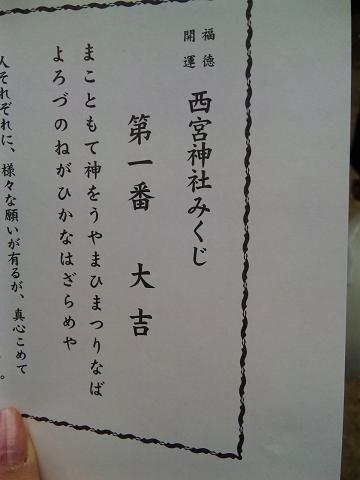 福徳
開運
西宮神社みくじ
第一番 大吉
まこともて神をうやまひまつりなば
よろづのねがひかなはざらめや
人それぞれに、様々な願いが有るが、真心こめて